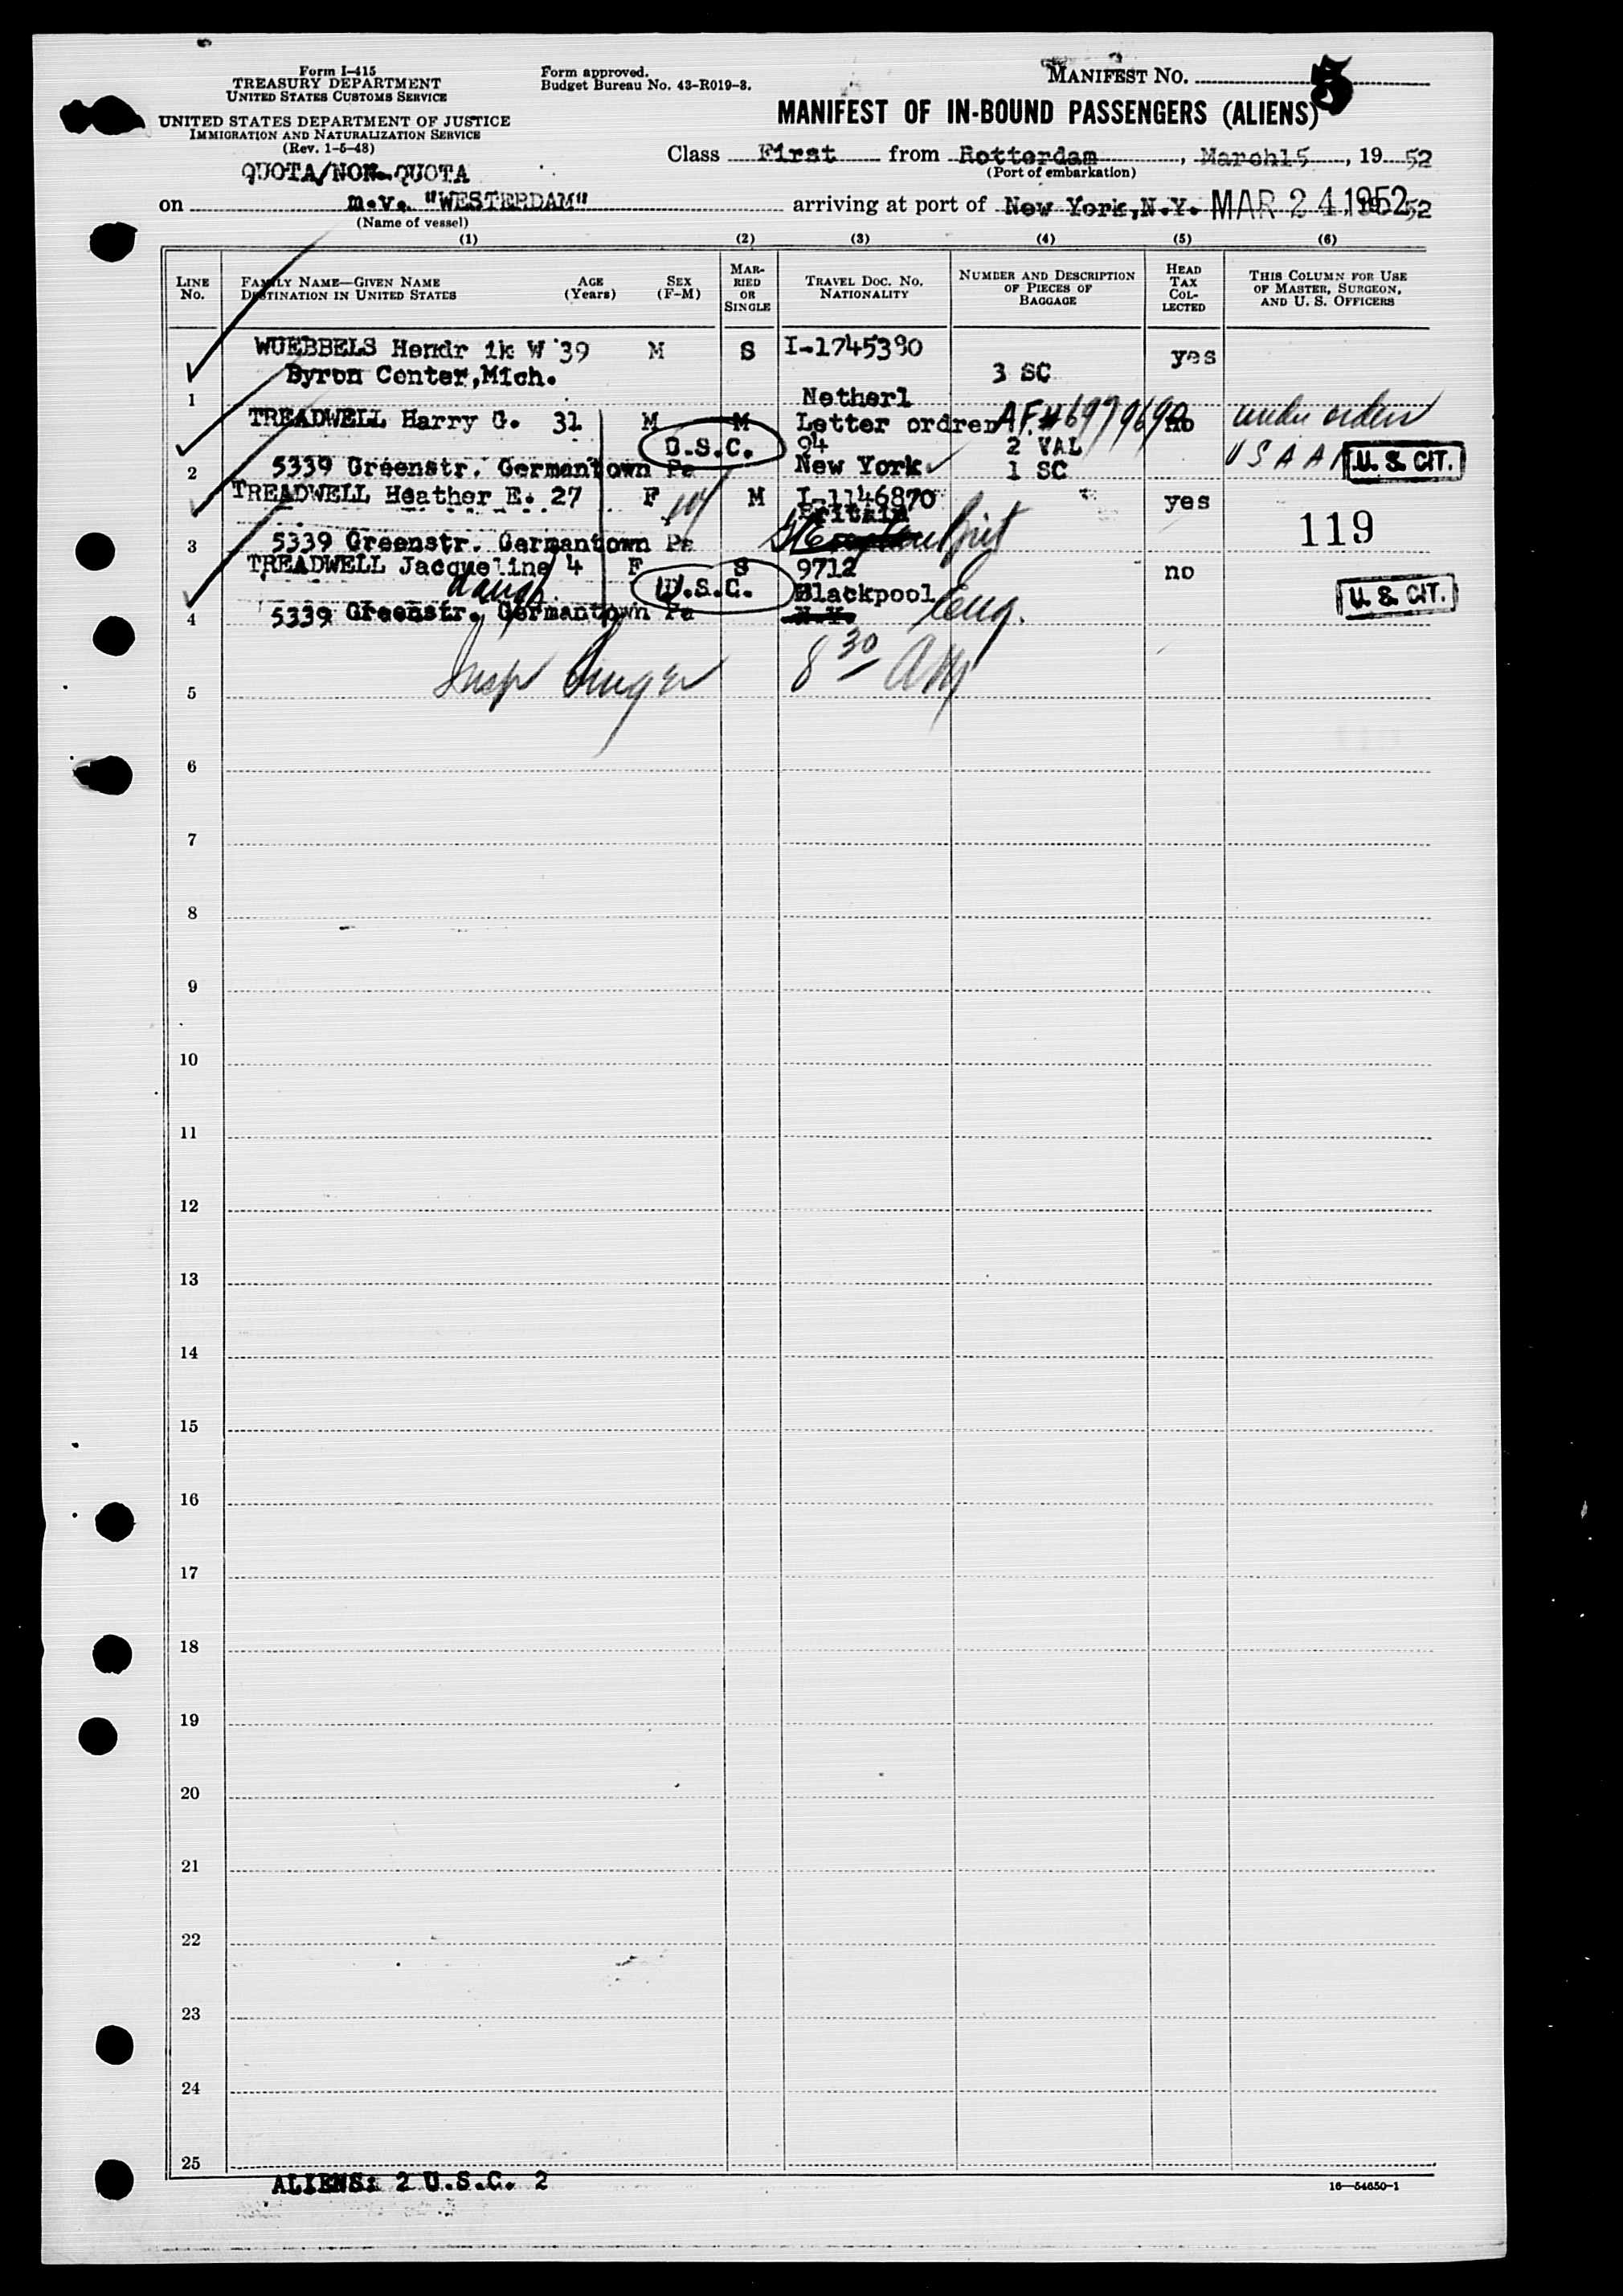 Form I-415
TREASURY DEPARTMENT
UNITED STATES CUSTOMS SERVICE
UNITED STATES DEPARTMENT OF JUSTICE
IMMIGRATION AND NATURALIZATION SERVICE
(Rev. 1-5-48)
Form approved.
Budget Bureau No. 43-R019-3.
MANIFEST NO. 5
MANIFEST OF IN-BOUND PASSENGERS (ALIENS)
QUOTA/NON-QUOTA
Class First from Rotterdam, March15, 1952
(Port of embarkation)
on m.v. "WESTERDAM" arriving at port of New York,N.Y. MAR 24 1952 52
(Name of vessel)
(1) (2) (3) (4) (5) (6)
LINE No.
FAMILY NAME—GIVEN NAME
DESTINATION IN UNITED STATES
AGE (Years)
SEX (F-M)
MARRIED OR SINGLE
TRAVEL DOC. NO. NATIONALITY
NUMBER AND DESCRIPTION OF PIECES OF BAGGAGE
HEAD TAX COLLECTED
THIS COLUMN FOR USE OF MASTER, SURGEON, AND U. S. OFFICERS
WUEBBELS Hendr ik W 39 M S I-1745380 yes
Byron Center,Mich. 3 SC
1 Netherl
TREADWELL Harry G. 31 M M Letter ordren AF# no under orders
U.S.C. 94 2 VAL USAAF U. S. CIT.
2 5339 Greenstr. Germantown Pa New York 1 SC
TREADWELL Heather E. 27 F M I-1146870 yes
Britain 119
3 5339 Greenstr. Germantown Pa Brit
TREADWELL Jacqueline 4 F S 9712 no
daugh U.S.C. Blackpool Eng. U. S. CIT.
4 5339 Greenstr. Germantown Pa N.Y.
Insp 8 30 AM
5
6
7
8
9
10
11
12
13
14
15
16
17
18
19
20
21
22
23
24
25
ALIENS: 2 U.S.C. 2
16—54650-1